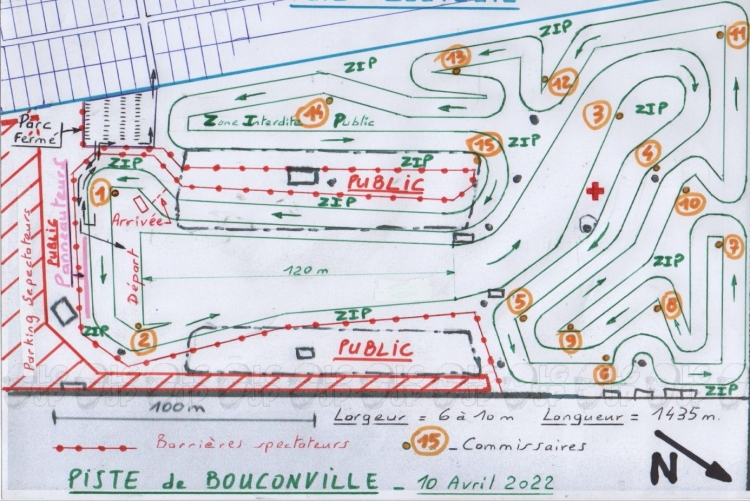 ZIP
ZIP
11
13
12
3
ZIP
14
Zone Interdite Public
Parc
Fermé
15
4
ZIP
ZIP
PUBLIC
1
10
ZIP
Arrivée
PUBLIC
Panneauteurs
Parking Spectateurs
Départ
120 m
7
ZIP
5
8
ZIP
ZIP
2
9
PUBLIC
6
ZIP
100 m
Largeur = 6 à 10 m Longueur = 1435 m.
Barrières spectateurs
15 - Commissaires
N
PISTE de BOUCONVILLE - 10 Avril 2022